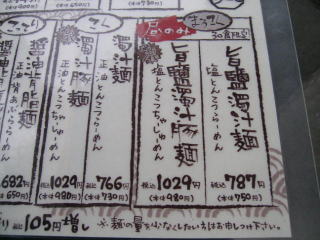 昼のみ
30食限定
旨鹽濁汁麺
塩とんこつらーめん
税込 787円
(本体 750円)
旨鹽濁汁豚麺
塩とんこつちゃーしゅーめん
税込 1029円
(本体 980円)
濁汁麺
正油とんこつらーめん
税込 766円
(本体 730円)
濁汁豚麺
正油とんこつちゃーしゅーめん
税込 1029円
(本体 980円)
醤油背脂麺
682円
650円)
105円増し
※麺の量を少なくしたい方はお申しつけ下さい。